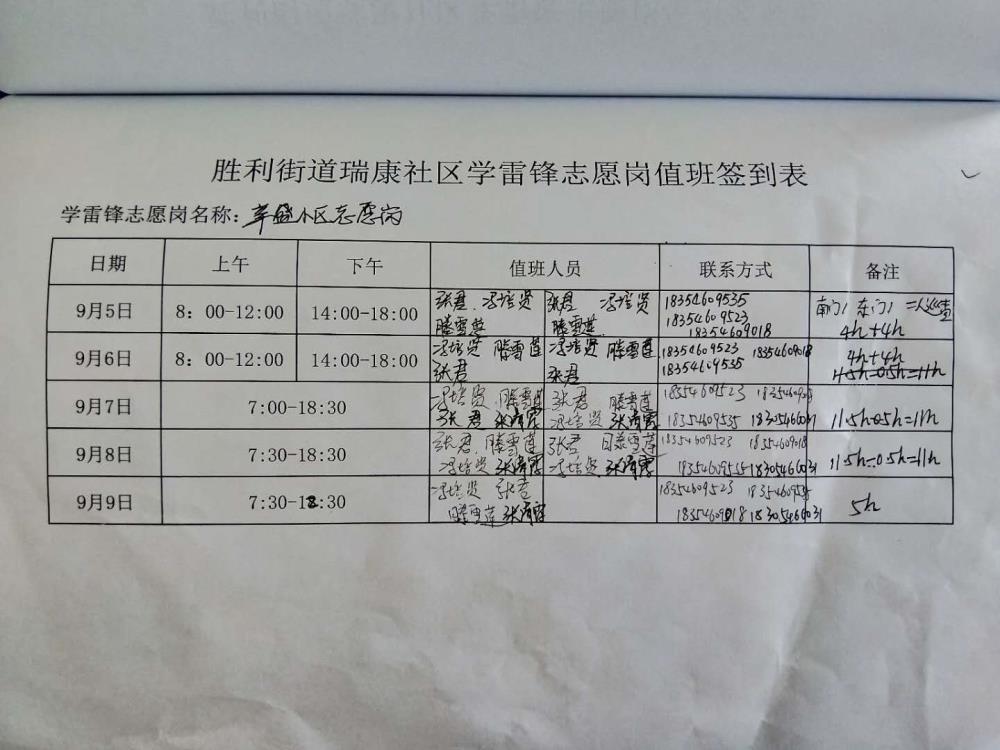 胜利街道瑞康社区学雷锋志愿岗值班签到表
学雷锋志愿岗名称：小区志愿岗
日期 上午 下午 值班人员 联系方式 备注
9月5日 8：00-12:00 14:00-18:00 张君 冯培贤 张君 冯培贤 18354609535 南门1 东门1 二人巡查
滕雪莲 滕雪莲 18354609523
18354609018 4h+4h
9月6日 8：00-12:00 14:00-18:00 冯培贤 滕雪莲 冯培贤 滕雪莲 18354609523 18354609018 4h+4h
张君 张君 18354609535
9月7日 7:00-18:30 冯培贤 滕雪莲 张君 滕雪莲 18354609523
张君 冯培贤 18354609535 18305466031 11.5h-0.5h=11h
9月8日 7:30-18:30 张君 滕雪莲 张君 18354609523 18354609018
冯培贤 冯培贤 18354609535 18305466031 11.5h-0.5h=11h
9月9日 7:30-12:30 冯培贤 张君 18354609523 18354609535
滕雪莲 18354609018 18305466031 5h